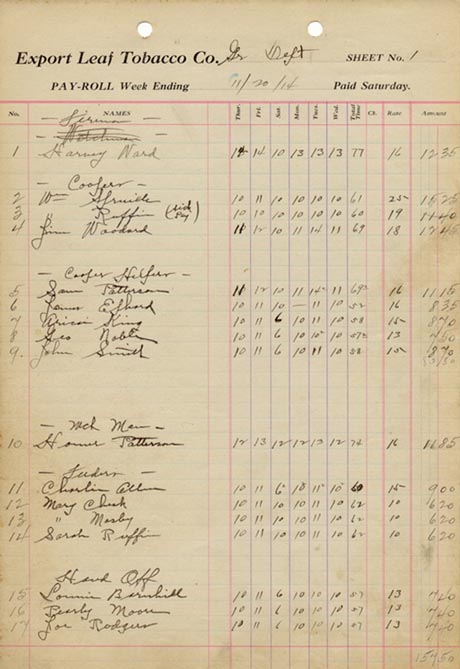 Export Leaf Tobacco Co. Gr Dept SHEET No. 1
PAY-ROLL Week Ending 11/20/14 Paid Saturday.
No. NAMES Thur. Fri. Sat. Mon. Tues. Wed. Total Time Ch. Rate Amount
— Firemen —
— Watchman —
1 Harvey Ward 14 14 10 13 13 13 77 16 12 35
— Coopers —
2 Wm 10 11 10 10 10 10 61 25 15 25
3 " Ruffin (sick Pay) 10 10 10 10 10 10 60 19 11 40
4 Jim Woodard 11 12 10 11 14 11 69 18 12 45
— Cooper Helpers —
5 Sam Patterson 11 12 10 11 14 11 69 16 11 15
6 10 11 10 — 11 10 52 16 8 35
7 King 10 11 6 10 11 10 58 15 8 70
8 Geo Noble 10 11 6 10 10 10 57 13 7 50
9. John Smith 10 11 6 10 11 10 58 15 8 70
— Wch Man —
10 Homer Patterson 12 13 12 12 13 12 74 16 11 85
— Feeders —
11 Charlie Allen 10 11 6 10 11 10 60 15 9 00
12 Mary Cheek 10 11 10 10 11 10 62 10 6 20
13 " Mosby 10 11 10 10 11 10 62 10 6 20
14 Sarah Ruffin 10 11 10 10 11 10 62 10 6 20
Hand Off
15 Lonnie Barnhill 10 11 6 10 10 10 57 13 7 40
16 Moore 10 11 6 10 10 10 57 13 7 40
17 Joe Rodgers 10 11 6 10 10 10 57 13 7 40
157 50